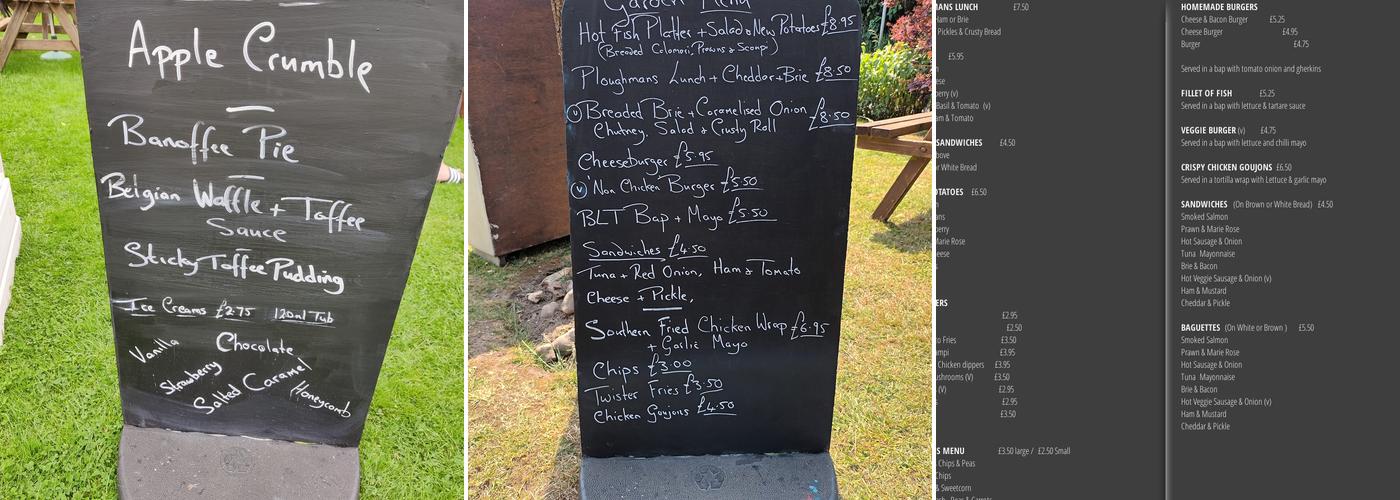 Apple Crumble
Banoffee Pie
Belgian Waffle + Toffee
Sauce
Sticky Toffee Pudding
Ice Creams £2.75 120ml Tub
Vanilla
Chocolate
Strawberry
Salted Caramel
Honeycomb
Garden Menu
Hot Fish Platter + Salad & New Potatoes £8.95
(Breaded Calamari, Prawns & Scampi)
Ploughmans Lunch + Cheddar + Brie £8.50
(v) Breaded Brie + Caramelised Onion £8.50
Chutney, Salad & Crusty Roll
Cheeseburger £5.95
(v) 'Non Chicken Burger £5.50
BLT Bap + Mayo £5.50
Sandwiches £4.50
Tuna + Red Onion, Ham & Tomato
Cheese + Pickle,
Southern Fried Chicken Wrap £6.95
+ Garlic Mayo
Chips £3.00
Twister Fries £3.50
Chicken Goujons £4.50
MANS LUNCH £7.50
Ham or Brie
Pickles & Crusty Bread
£5.95
(v)
Basil & Tomato (v)
& Tomato
SANDWICHES £4.50
or White Bread
£6.50
Marie Rose
£2.95
£2.50
Fries £3.50
£3.95
Chicken dippers £3.95
(V) £3.50
(V) £2.95
£2.95
£3.50
MENU £3.50 large / £2.50 Small
Chips & Peas
Chips
& Sweetcorn
HOMEMADE BURGERS
Cheese & Bacon Burger £5.25
Cheese Burger £4.95
Burger £4.75
Served in a bap with tomato onion and gherkins
FILLET OF FISH £5.25
Served in a bap with lettuce & tartare sauce
VEGGIE BURGER (v) £4.75
Served in a bap with lettuce and chilli mayo
CRISPY CHICKEN GOUJONS £6.50
Served in a tortilla wrap with Lettuce & garlic mayo
SANDWICHES (On Brown or White Bread) £4.50
Smoked Salmon
Prawn & Marie Rose
Hot Sausage & Onion
Tuna Mayonnaise
Brie & Bacon
Hot Veggie Sausage & Onion (v)
Ham & Mustard
Cheddar & Pickle
BAGUETTES (On White or Brown ) £5.50
Smoked Salmon
Prawn & Marie Rose
Hot Sausage & Onion
Tuna Mayonnaise
Brie & Bacon
Hot Veggie Sausage & Onion (v)
Ham & Mustard
Cheddar & Pickle